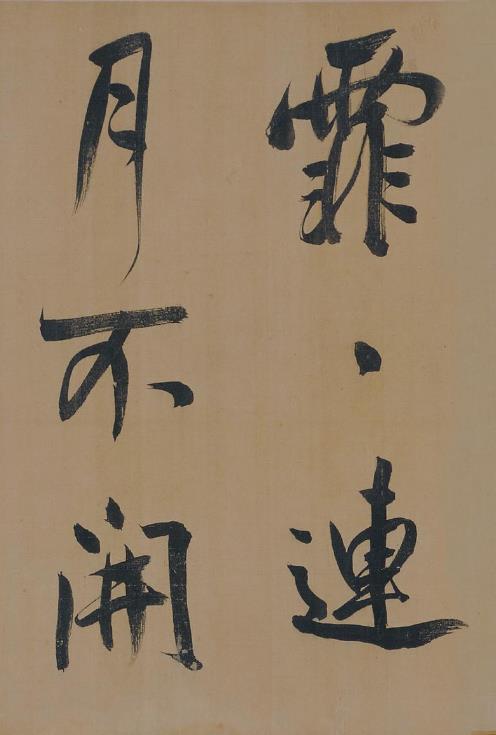 霏、連
月不開